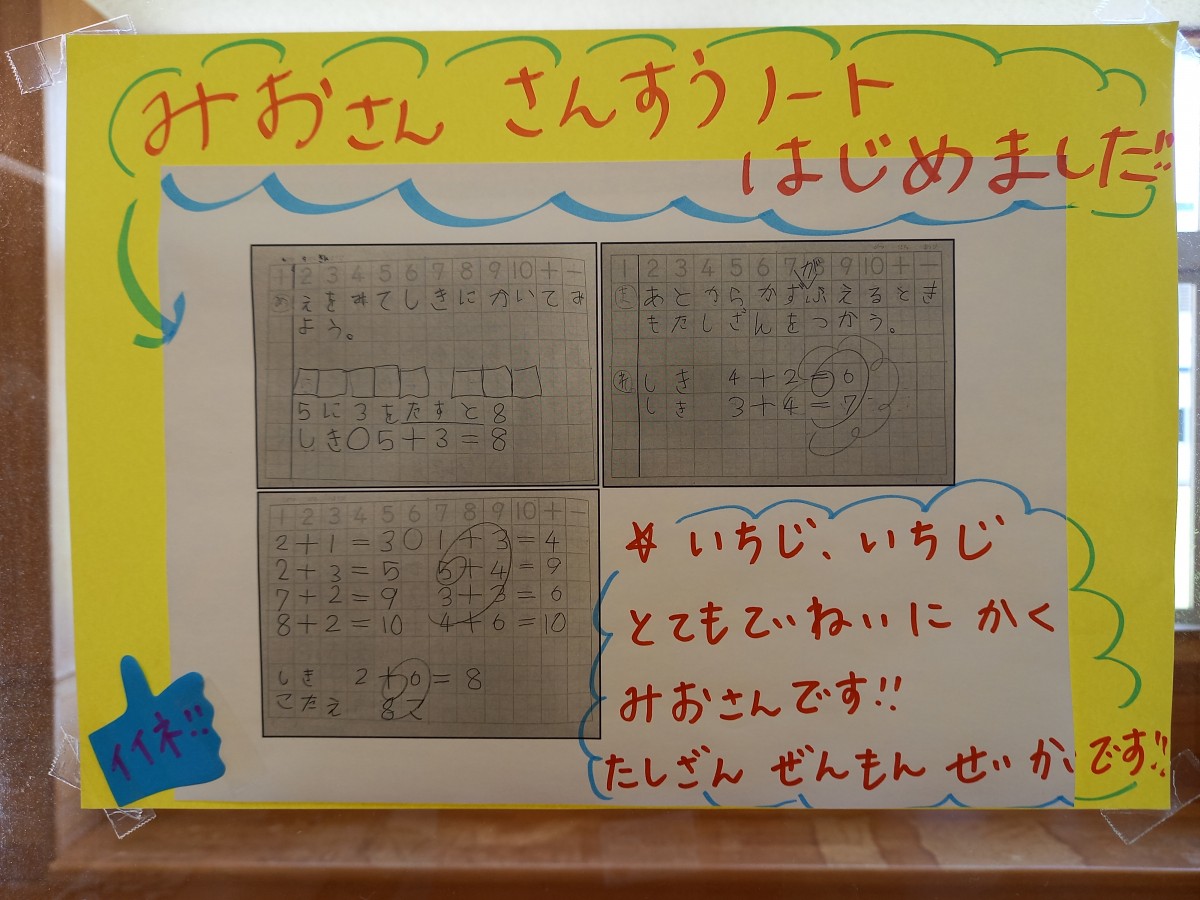 みおさん さんすうノート
はじめました!!
1 2 3 4 5 6 7 8 9 10 + −
め えをみてしきにかいてみ
よう。
5に3をたすと8
しき 5+3=8
1 2 3 4 5 6 7 8 9 10 + −
ま あとからかずがふえるとき
もたしざんをつかう。
れ しき 4+2=6
しき 3+4=7
1 2 3 4 5 6 7 8 9 10 + −
2+1=3 1+3=4
2+3=5 5+4=9
7+2=9 3+3=6
8+2=10 4+6=10
しき 2+6=8
こたえ 8こ
☆ いちじ、いちじ
とてもていねいに かく
みおさんです!!
たしざん ぜんもん せいかいです!!
イイネ!!